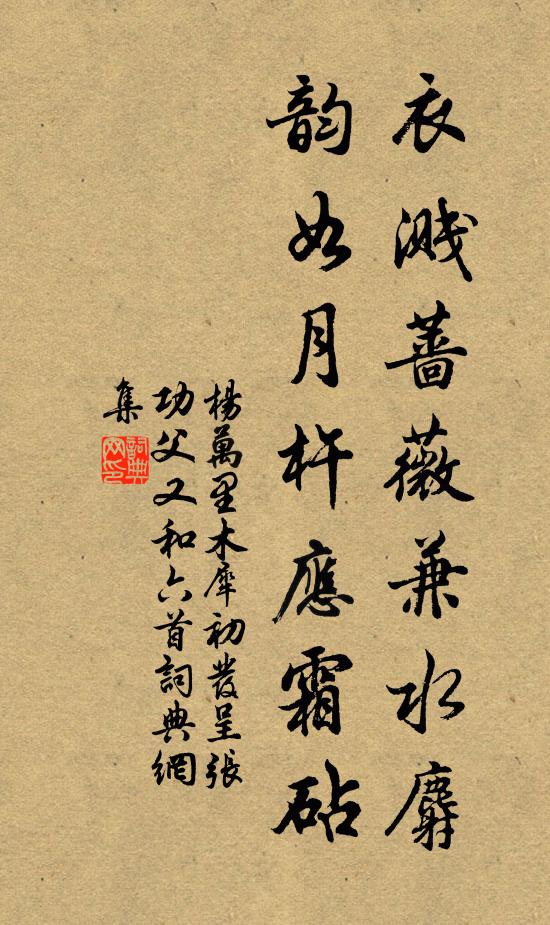 衣濺薔薇兼水麝
韵如月杵應霜砧
楊萬里木犀初發呈張
功父又和六首詞典網
集
詞典
网印